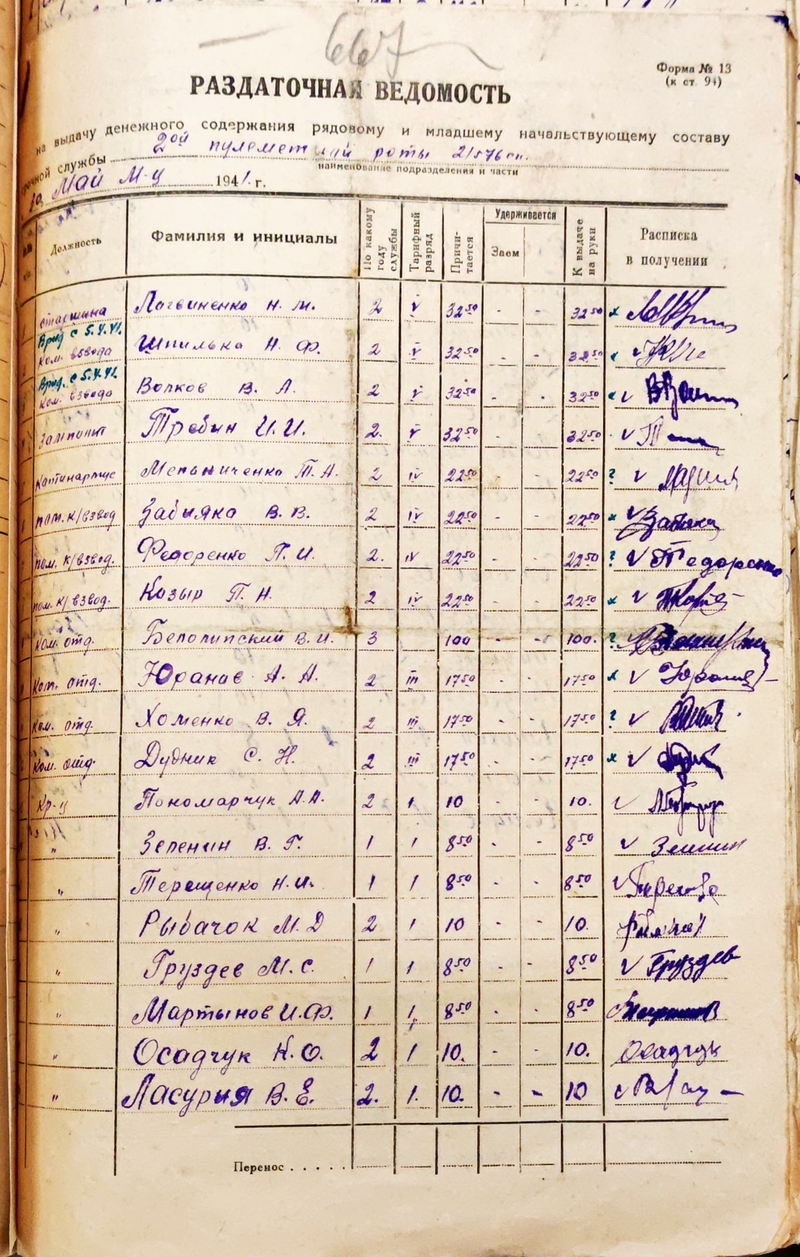 667
Форма № 13
(к ст. 91)
РАЗДАТОЧНАЯ ВЕДОМОСТЬ
на выдачу денежного содержания рядовому и младшему начальствующему составу
срочной службы 2ой пулемет ной роты 2/576 сп.
наименование подразделения и части
за Май М-ц 1941 г.
Должность Фамилия и инициалы По какому году службы Тарифный разряд Причитается Удерживается Заем К выдаче на руки Расписка в получении
старшина Логвиненко Н. М. 2 V 32 50 - - 32 50
Врид с 5.V.41. ком. взвода Шпилько Н. Ф. 2 V 32 50 - - 32 50
Врид. с 5.V.41. ком. взвода Волков В. А. 2 V 32 50 - - 32 50
Зам политр Требин И. И. 2. V 32 50 - - 32 50
Мельниченко Т. А. 2 IV 22 50 - - 22 50
пом. к/взвод Забияко В. В. 2 IV 22 50 - - 22 50 Забияко
пом. к/взвод. Федоренко П. И. 2. IV 22 50 - - 22 50 Федоренко
пом. к/взвод. Козыр П. Н. 2 IV 22 50 - - 22 50
Ком. отд. Белолипский В. И. 3 100 - - 100.
Ком. отд. Юранов А. А. 2 III 17 50 - - 17 50
Ком. отд. Хоменко В. Я. 2 III 17 50 - - 17 50
Ком. отд. Дудник С. Н. 2 III 17 50 - - 17 50
Кр-ц Пономарчук А. А. 2 1 10 - - 10.
" Зеленин В. Г. 1 1 8 50 - - 8 50
" Терещенко Н. И. 1 1 8 50 - - 8 50
" Рыбачок М. Д 2 1 10 - - 10.
" Груздев М. С. 1 1 8 50 - - 8 50 Груздев
" Мартынов И. Ф. 1 1 8 50 - - 8 50
" Осадчук К. О. 2 1 10. - - 10. Осадчук
" Ласурия В. Е. 2. 1. 10. - - 10
Перенос . . . . .